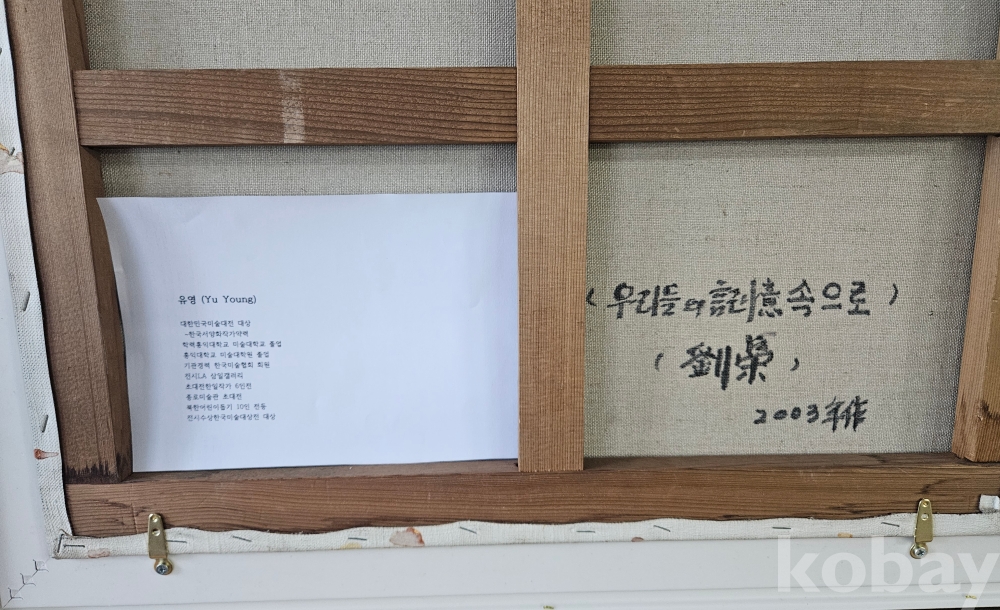 유영 (Yu Young)
대한민국미술대전 대상
-한국서양화작가약력
학력홍익대학교 미술대학교 졸업
홍익대학교 미술대학원 졸업
기관경력 한국미술협회 회원
전시LA 삼일갤러리
초대전한일작가 6인전
종로미술관 초대전
북한어린이돕기 10인 전동
전시수상한국미술대상전 대상
(우리들의 속으로)
(劉榮)
2003年作
kobay